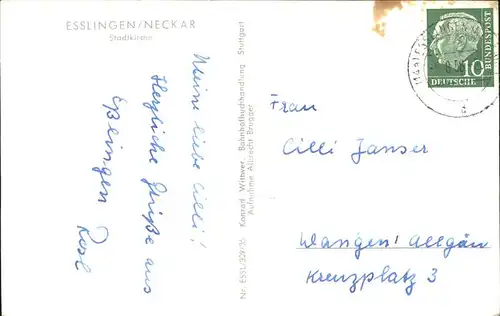 ESSLINGEN/NECKAR
Stadtkirche
Meine liebe Cilli!
Herzliche Grüße aus
Eßlingen Rosl
Nr. ESSL/309/35 Konrad Wittwer, Bahnhofbuchhandlung Stuttgart
Aufnahme Albrecht Brugger
10
DEUTSCHE
BUNDESPOST
a
Frau
Cilli Janser
Wangen / Allgäu
Kreuzplatz 3